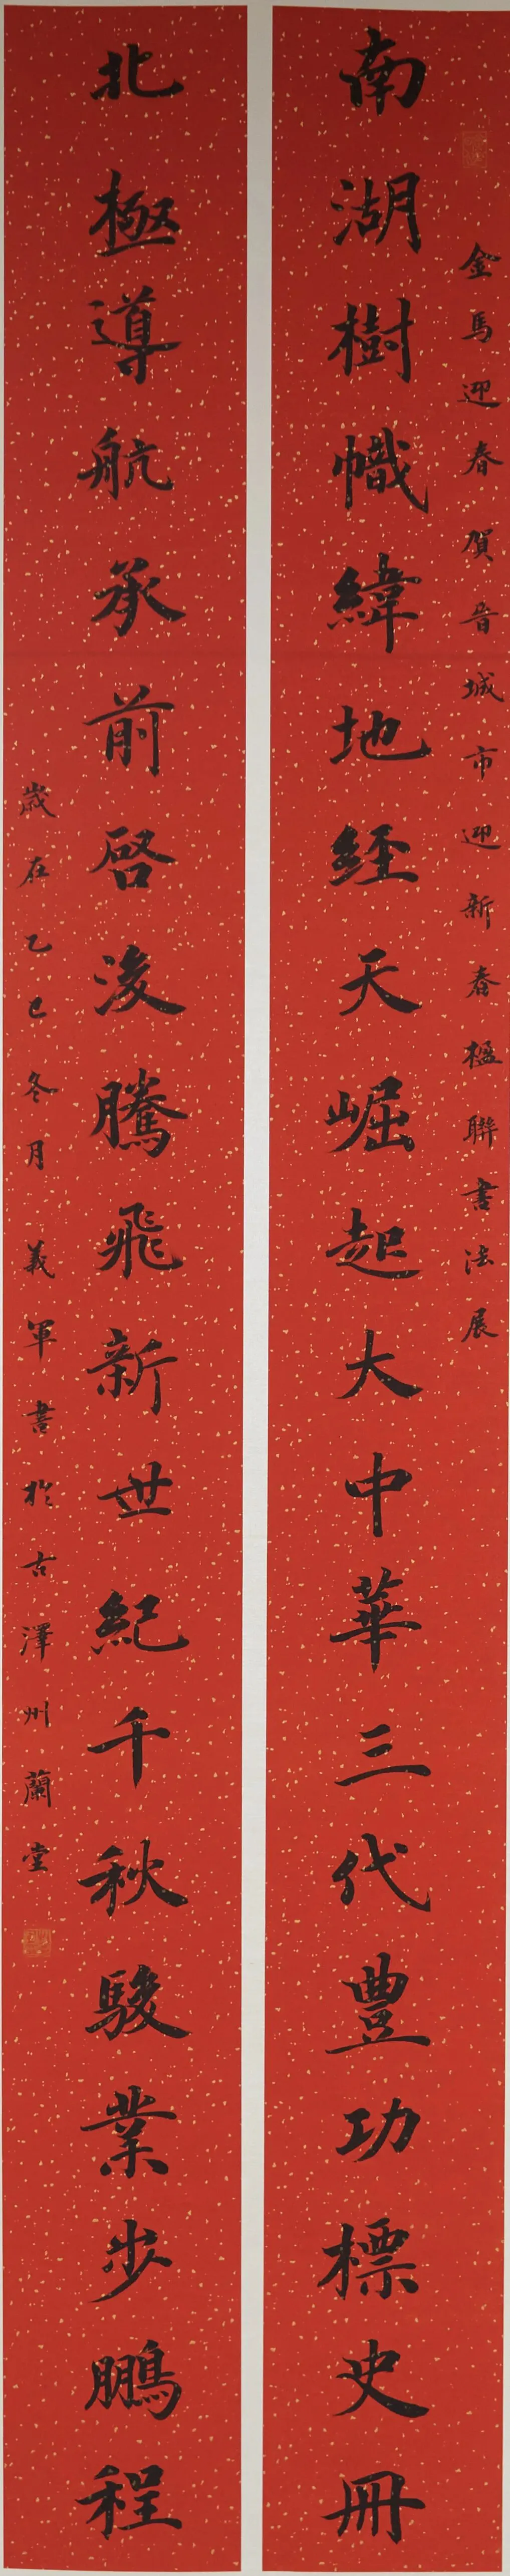 金馬迎春賀晉城市迎新春楹聯書法展
南湖樹幟緯地経天崛起大中華三代豊功標史冊
北極導航承前啓後騰飛新世紀千秋駿業步鵬程
歲在乙巳冬月義軍書於古澤州蘭堂